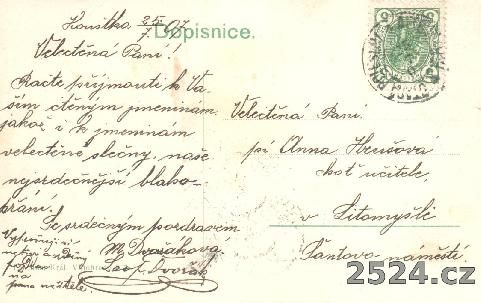 Houška 25/7 07
Dopisnice.
Velectěná Paní!
Račte přijmouti k Va-
šim ctěným jmeninám
jakož i k jmeninám
velectěné slečny, naše
nejsrdečnější blaho-
přání.
Se srdečným pozdravem
M. Dvořáková
Josef Dvořák
na
pana učitele.
Velectěná Paní
pí Anna Hrušová
choť učitele,
v Litomyšli
Šantovo náměstí.
2524.cz